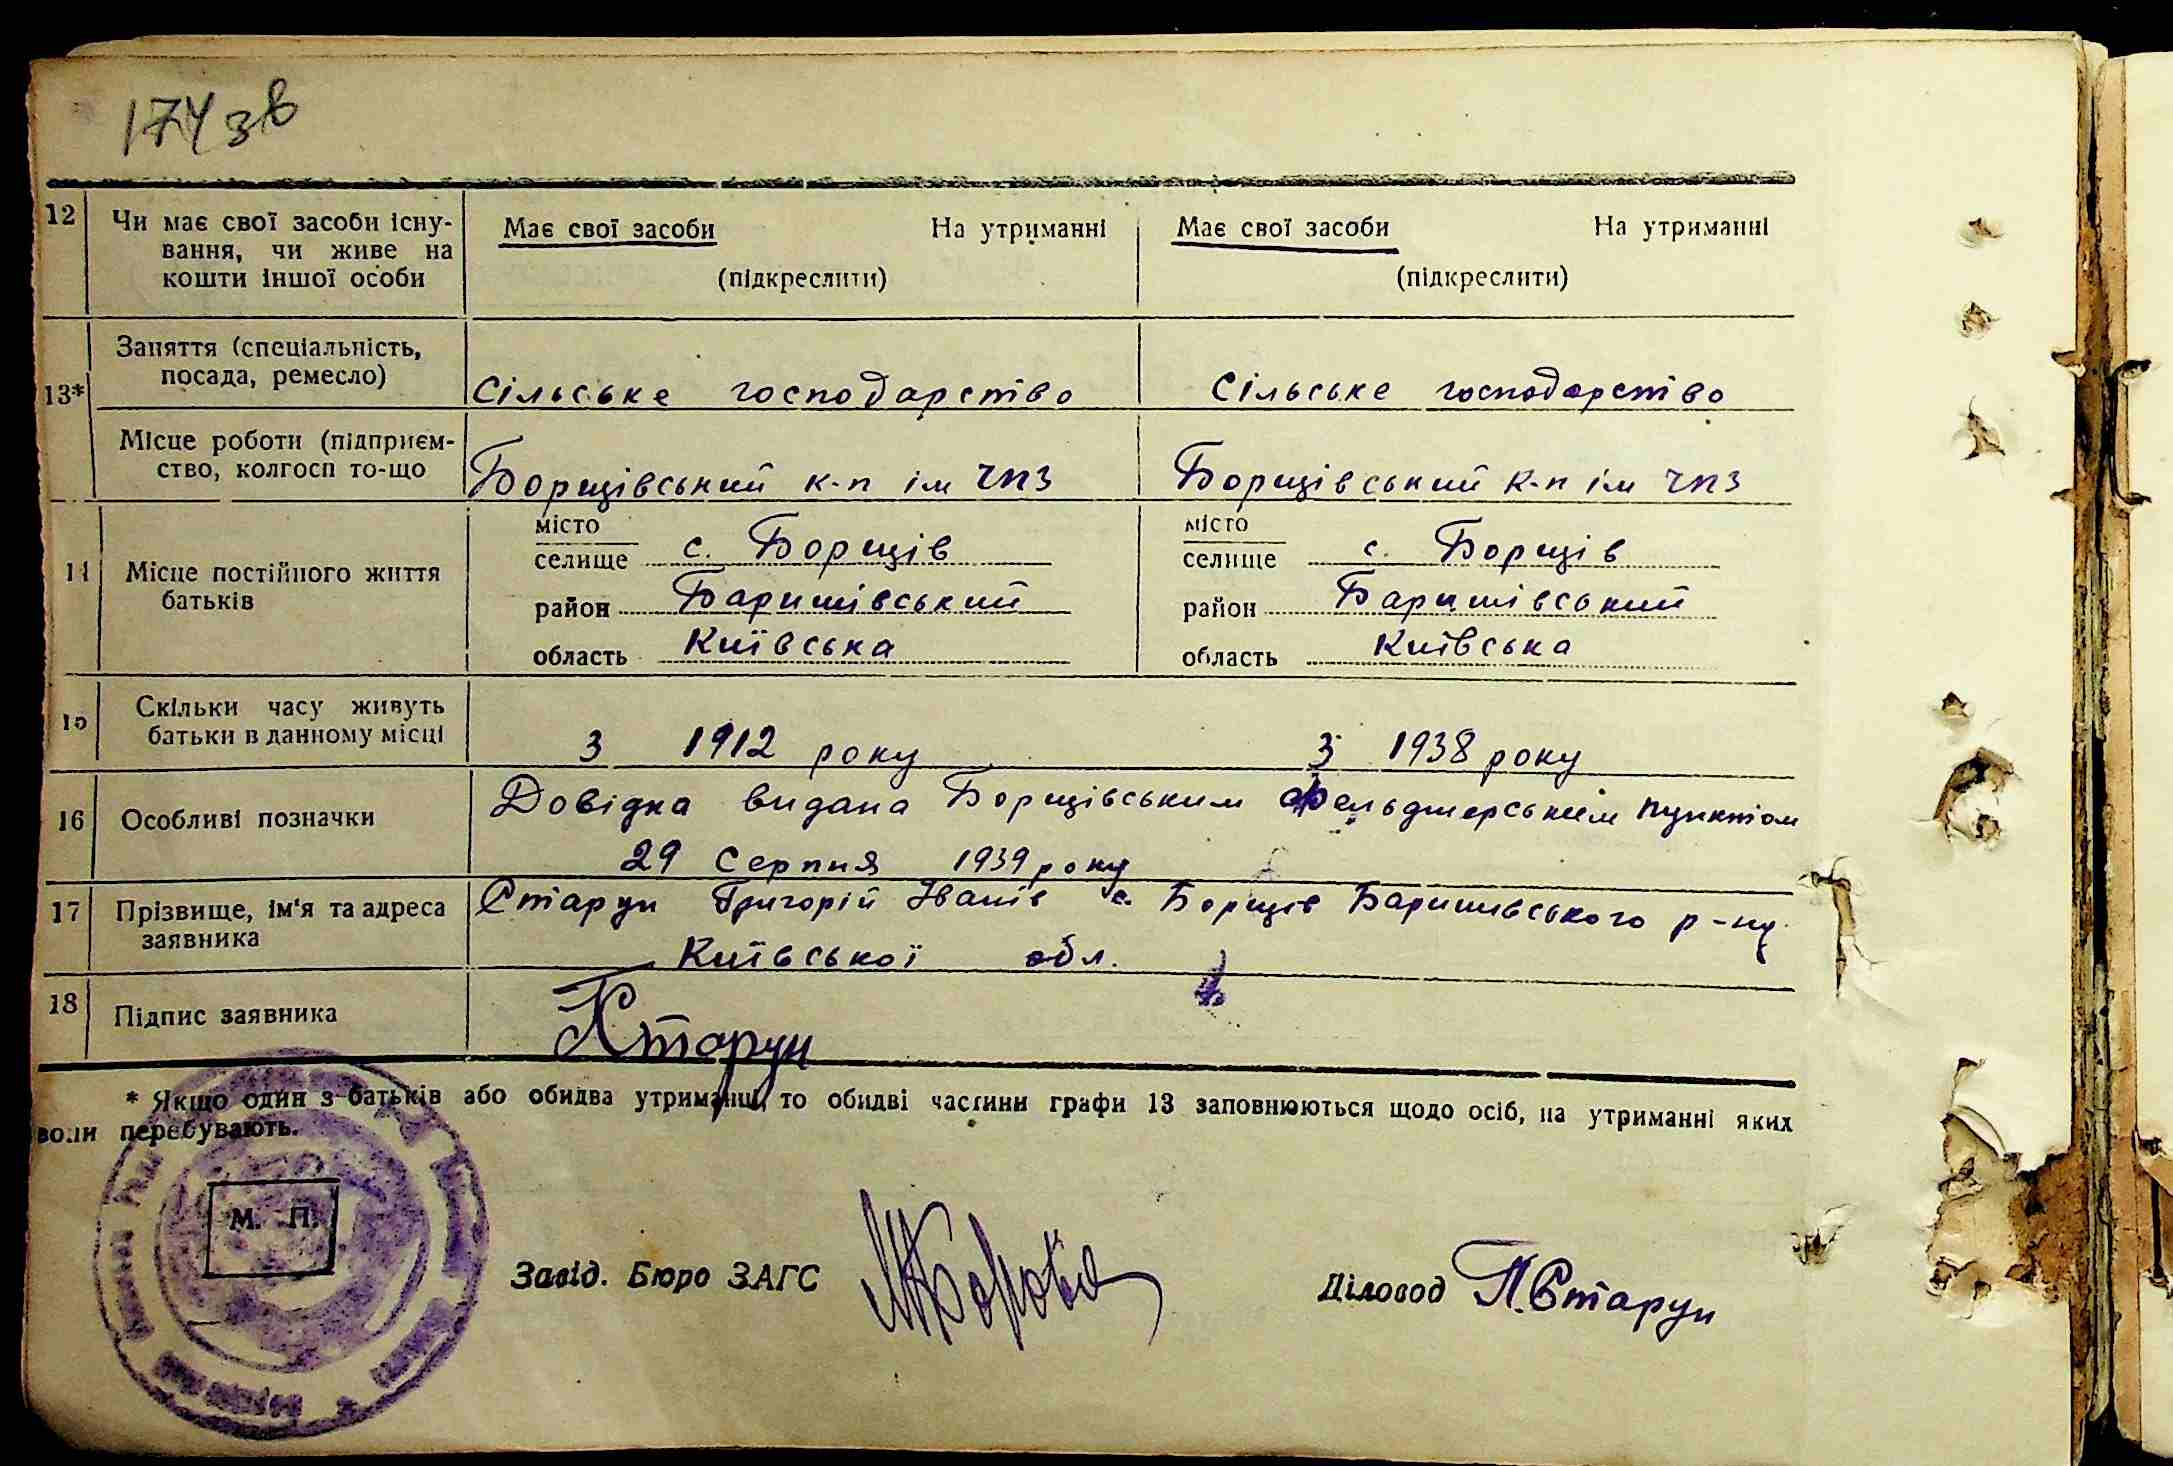 174 зв
12 Чи має свої засоби існу-
вання, чи живе на
кошти іншої особи
Має свої засоби На утриманні
(підкреслити)
Має свої засоби На утриманні
(підкреслити)
13*
Заняття (спеціальність,
посада, ремесло)
Сільське господарство
Сільське господарство
Місце роботи (підприєм-
ство, колгосп то-що
Борщівський к-п ім ЧПЗ
Борщівський к-п ім ЧПЗ
14 Місце постійного життя
батьків
місто
селище с. Борщів
район Баришівський
область Київська
місто
селище с. Борщів
район Баришівський
область Київська
15 Скільки часу живуть
батьки в данному місці
З 1912 року
З 1938 року
16 Особливі позначки
Довідка видана Борщівським фельдшерським пунктом
29 Серпня 1939 року
17 Прізвище, ім'я та адреса
заявника
Старун Григорій Іванів с. Борщів Баришівського р-ну
Київської обл.
18 Підпис заявника
Старун
* Якщо один з батьків або обидва утриманці, то обидві частини графи 13 заповнюються щодо осіб, на утриманні яких
вони перебувають.
М. П.
Завід. Бюро ЗАГС
Діловод П. Старун